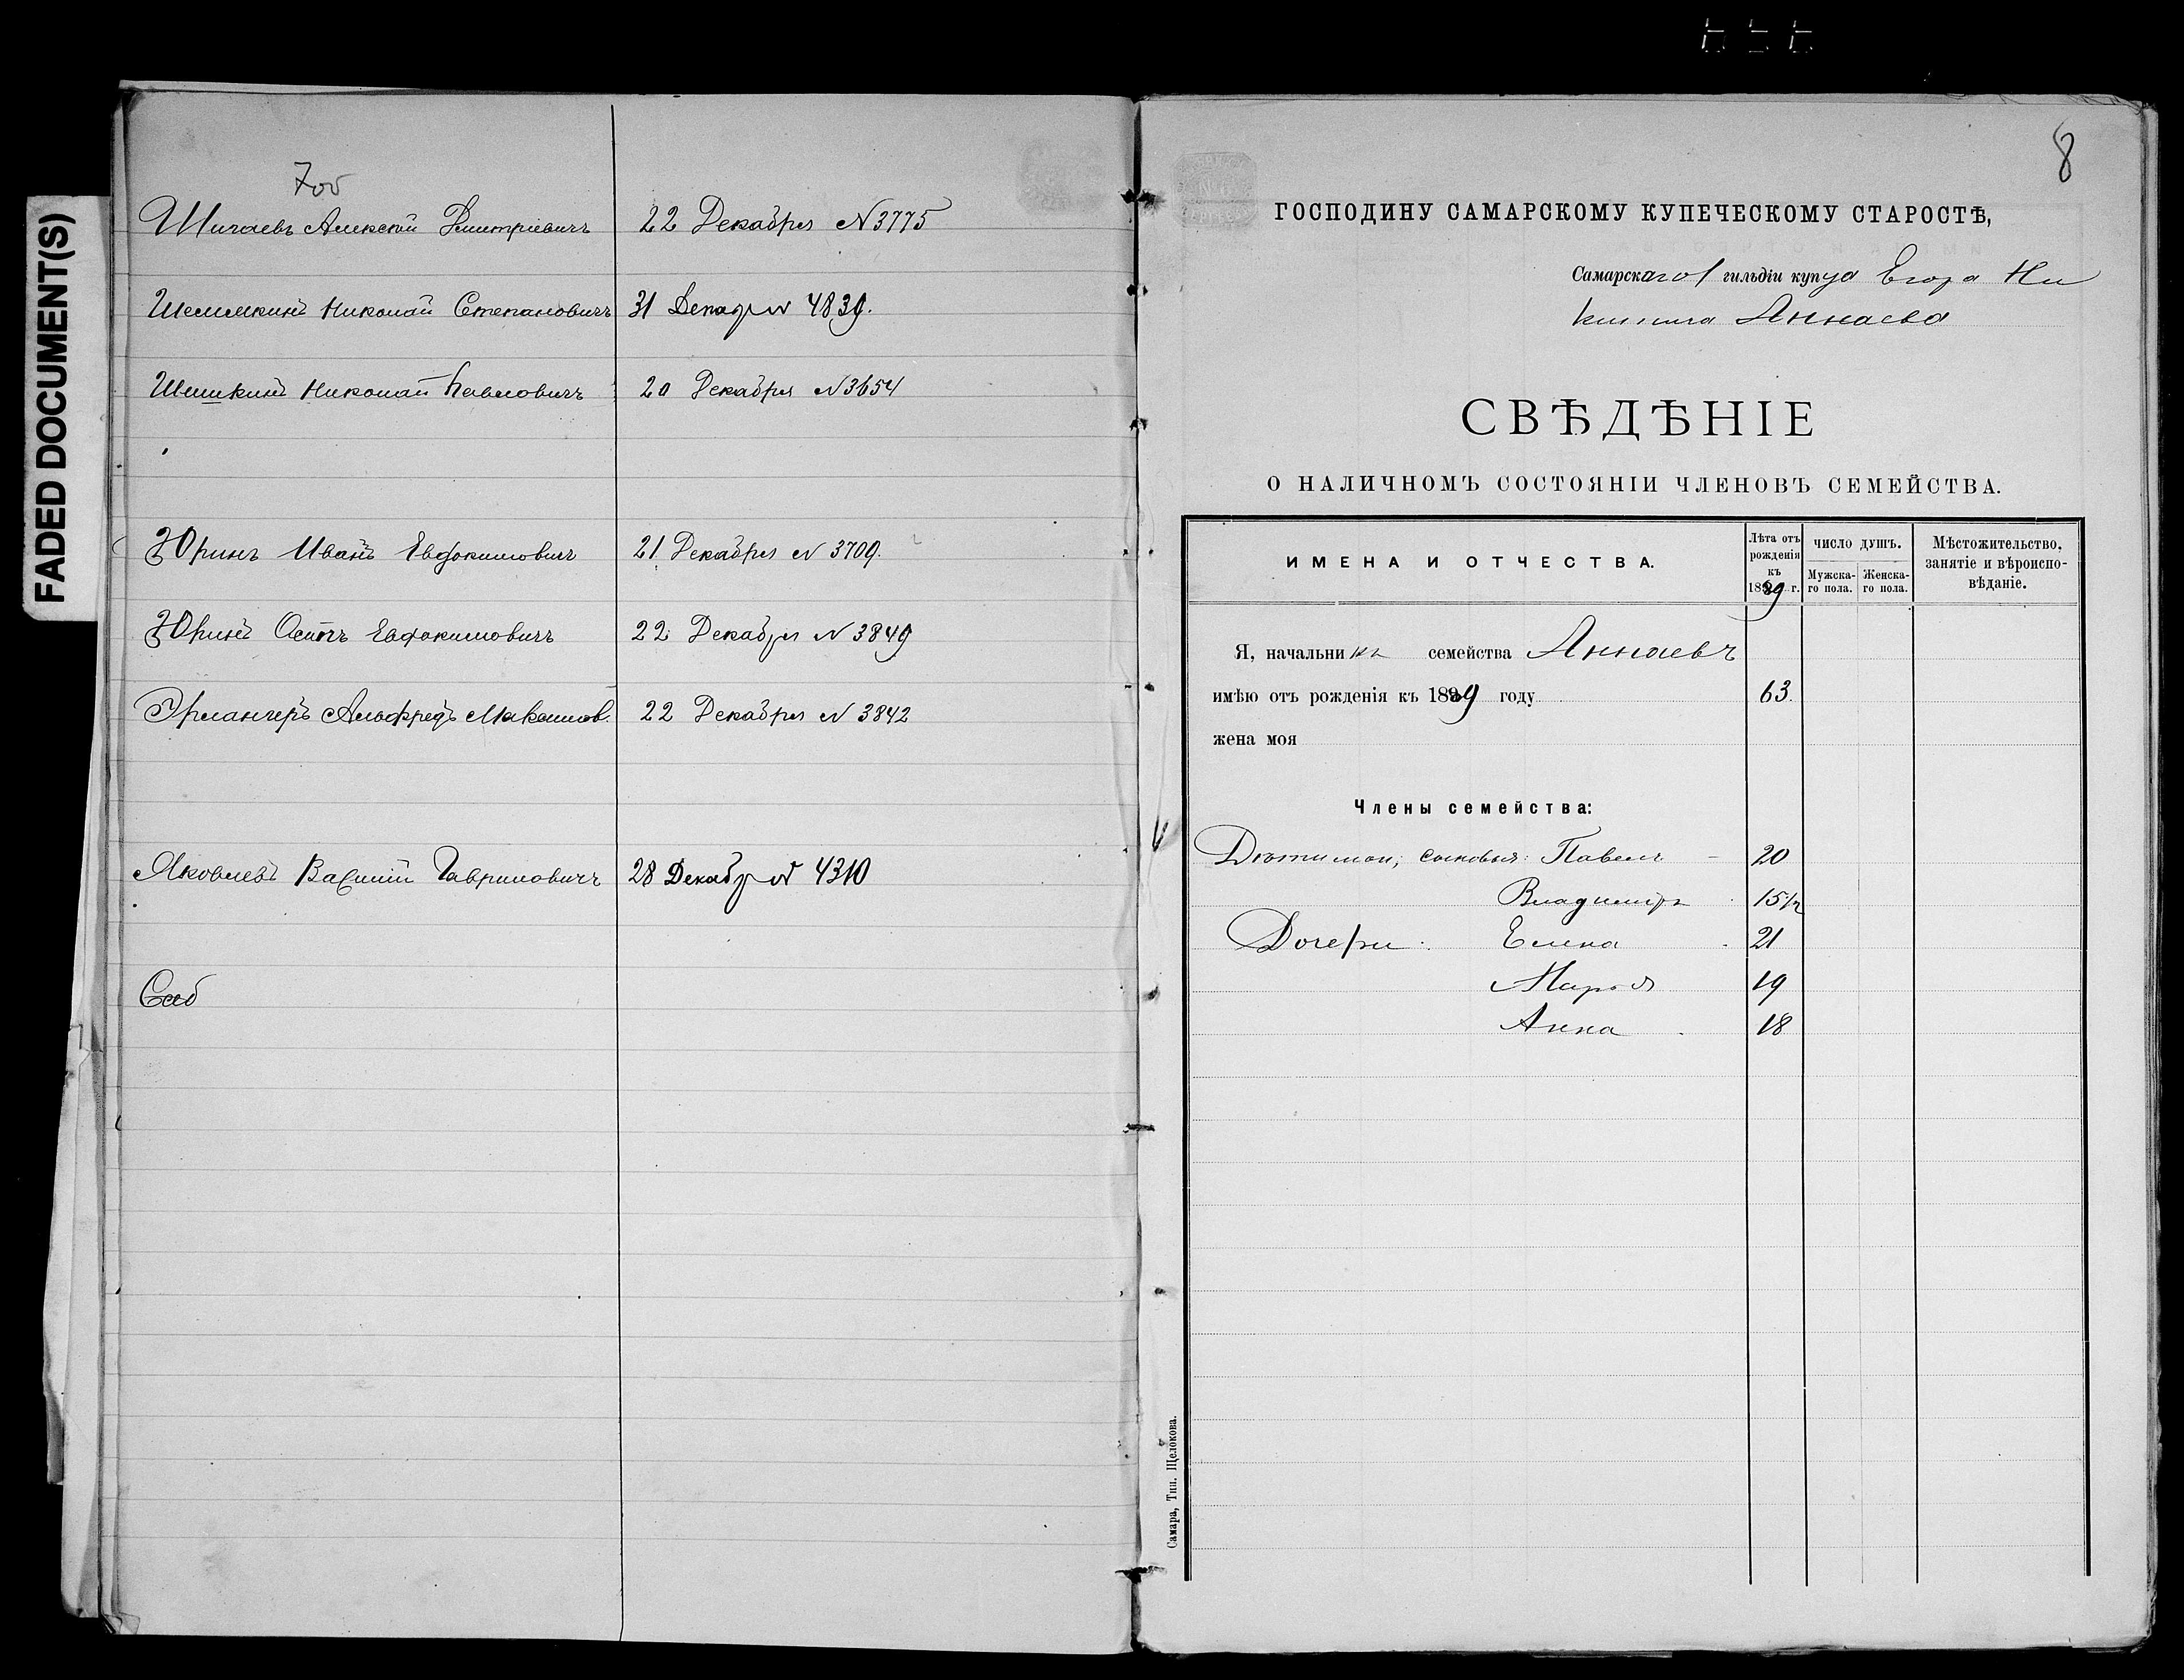 FADED DOCUMENT(S)
7об
Шигаевъ Алексѣй Дмитріевичъ 22 Декабря N 3775
Шемякинъ Николай Степановичъ 31 Декабр N 4839.
Шишкинъ Николай Павловичъ 20 Декабря N 3654
Юринъ Иванъ Евдокимовичъ 21 Декабря N 3709.
Юринъ Осипъ Евдокимовичъ 22 Декабря N 3849
Эрлангеръ Альфредъ Максимов. 22 Декабря N 3842
Яковлевъ Василій Гавриловичъ 28 Декабр N 4310
8
ГОСПОДИНУ САМАРСКОМУ КУПЕЧЕСКОМУ СТАРОСТѢ,
Самарскаго 1 гильдіи купца Егора Ни
китича Аннаева
СВѢДѢНІЕ
О НАЛИЧНОМЪ СОСТОЯНІИ ЧЛЕНОВЪ СЕМЕЙСТВА.
ИМЕНА И ОТЧЕСТВА.
Лѣта отъ
рожденія
къ
1889 г.
ЧИСЛО ДУШЪ.
Мужска-
го пола.
Женска-
го пола.
Мѣстожительство,
занятіе и вѣроиспо-
вѣданіе.
Я, начальникъ семейства Аннаевъ
имѣю отъ рожденія къ 1889 году 63.
жена моя
Члены семейства:
Дѣти мои; сыновья: Павелъ – 20
Владиміръ 15 1/2
Дочери: Елена 21
Марья 19
Анна 18
Самара, Тип. Щелокова.